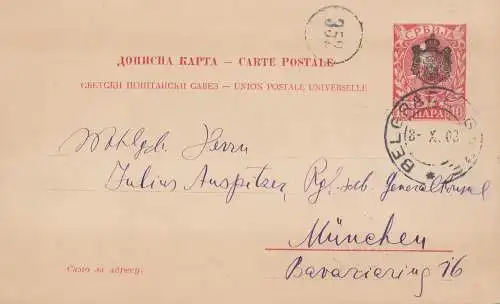 352
СРБИЈА
ДОПИСНА КАРТА — CARTE POSTALE
СВЕТСКИ ПОШТАНСКИ САВЕЗ — UNION POSTALE UNIVERSELLE
10 ПАРА 10
BELGRADE
8- X. 02
Wohlgeb. Herrn
Julius Auspitzer, Kgl. serb. Generalkonsul
München
Bavariaring 26
Само за адресу.